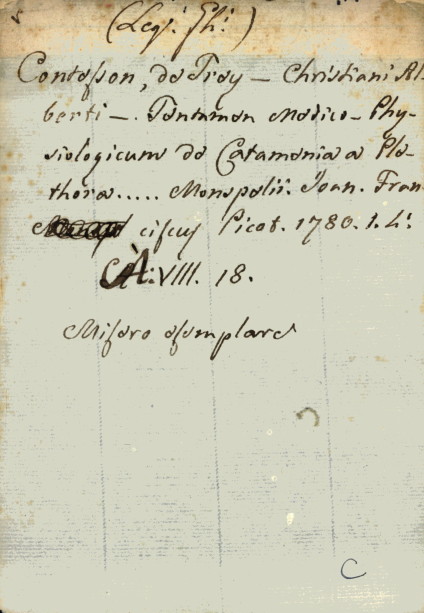 (Legs: Gh: )
Contesson, de Troy — Christiani Al-
berti —. Tentamen Medico-Phy-
siologicum de Catamenia a Ple-
thora..... Monspelii. Joan. Fran-
ciscus Picot. 1780. 1. 4:
A: VIII. 18.
Misero esemplare
C